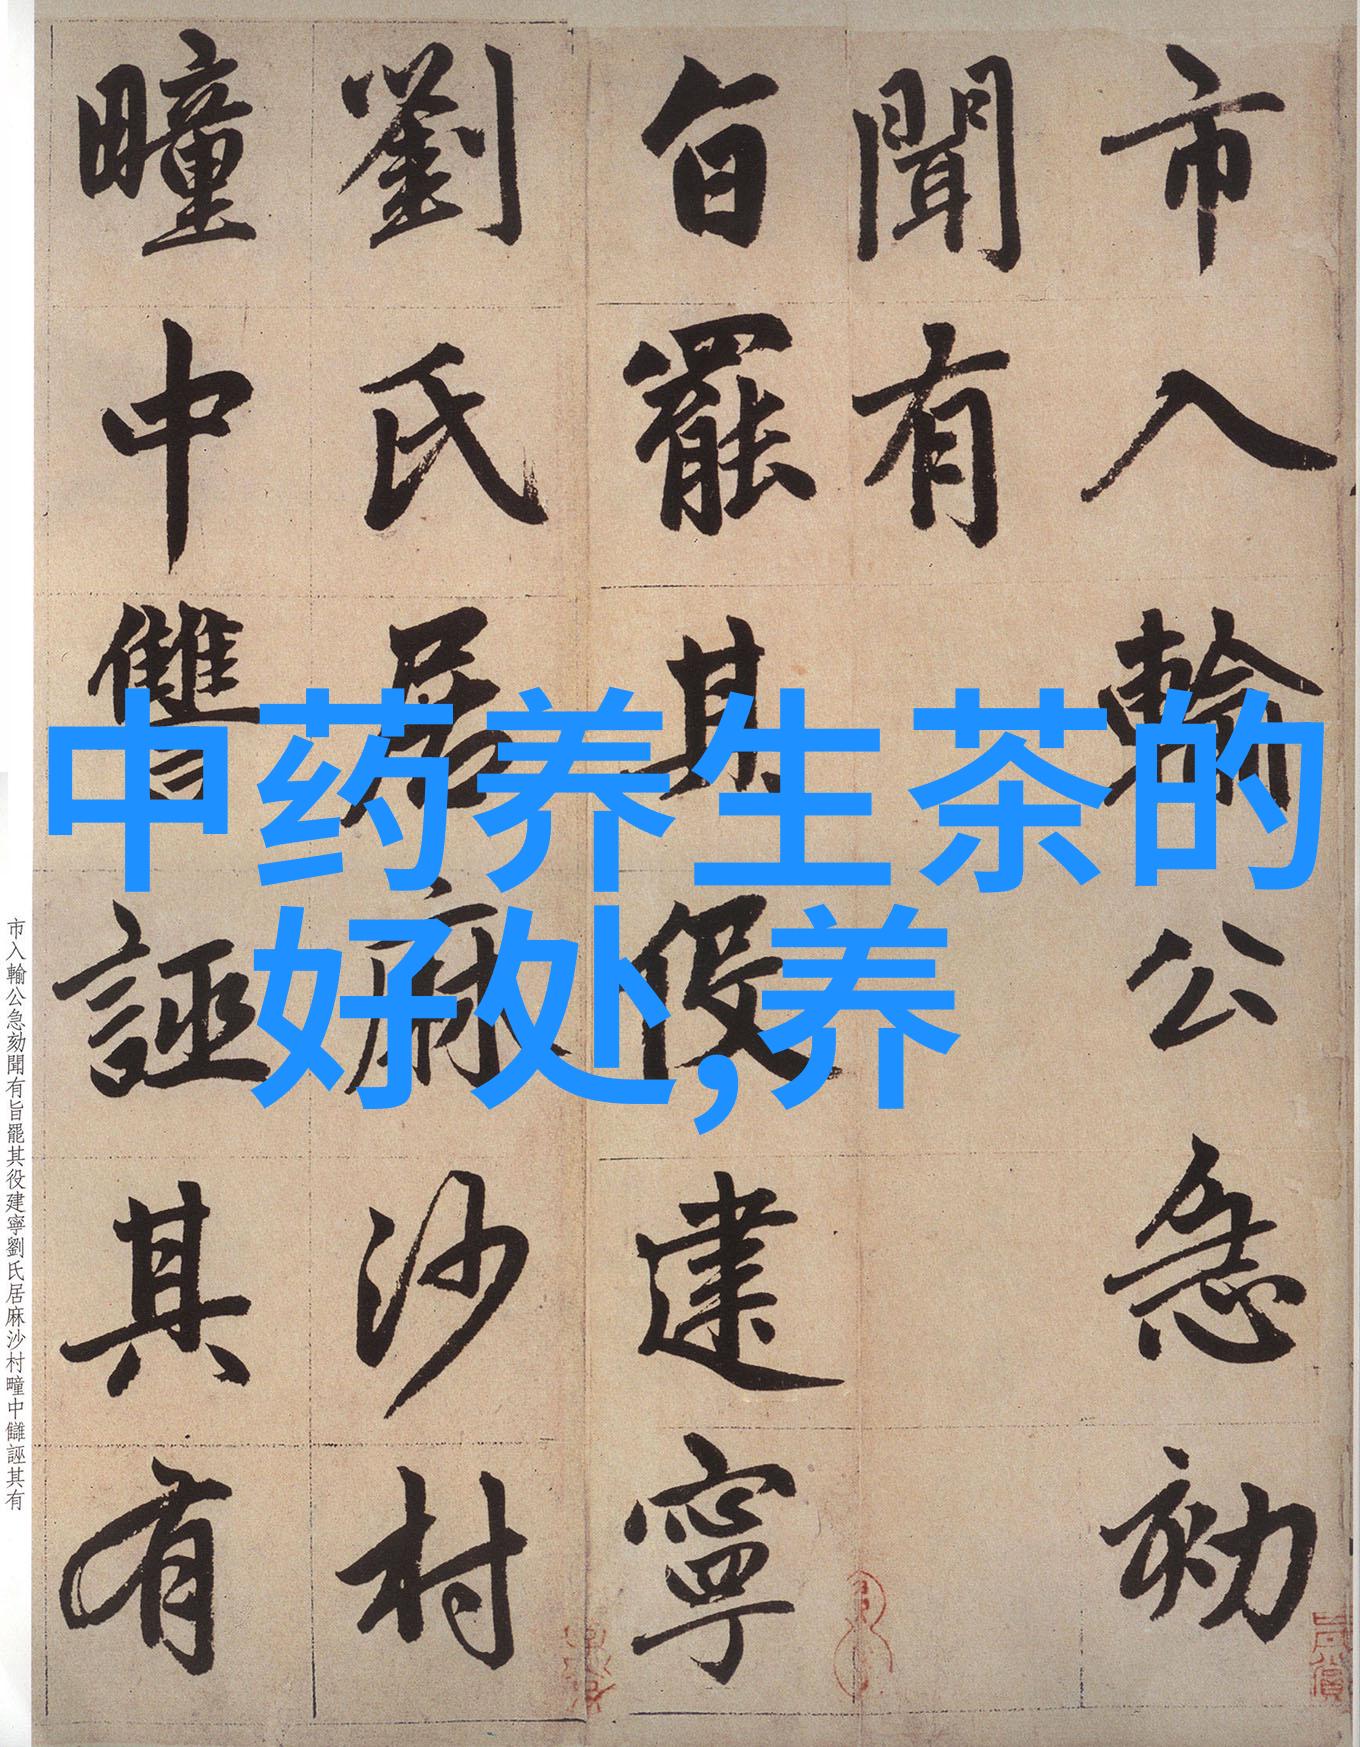 市入輸公急刻
聞有
旨罷其役建寧
劉氏居麻沙村
疃中讎誣其有
中药养生茶的
好处,养
市入輸公急刻聞有旨罷其役建寧劉氏居麻沙村疃中讎誣其有